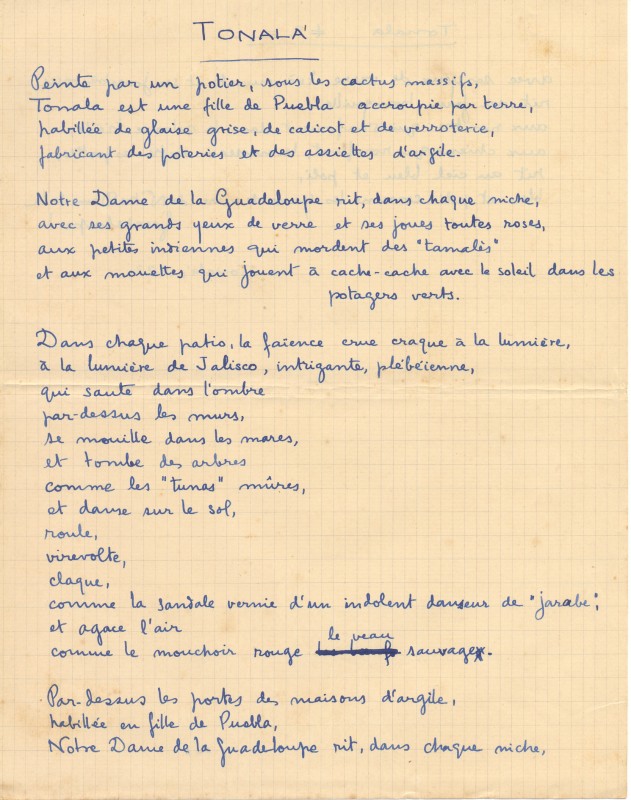 TONALÁ
Peinte par un potier, sous les cactus massifs,
Tonala est une fille de Puebla accroupie par terre,
habillée de glaise grise, de calicot et de verroterie,
fabricant des poteries et des assiettes d'argile.
Notre Dame de la Guadeloupe rit, dans chaque niche,
avec ses grands yeux de verre et ses joues toutes roses,
aux petites indiennes qui mordent des "tamalès"
et aux mouettes qui jouent à cache-cache avec le soleil dans les
potagers verts.
Dans chaque patio, la faïence crue craque à la lumière,
à la lumière de Jalisco, intrigante, plébéienne,
qui saute dans l'ombre
par-dessus les murs,
se mouille dans les mares,
et tombe des arbres
comme les "tunas" mûres,
et danse sur le sol,
roule,
virevolte,
claque,
comme la sandale vernie d'un indolent danseur de "jarabe",
et agace l'air
le veau
comme le mouchoir rouge sauvage.
Par-dessus les portes des maisons d'argile,
habillée en fille de Puebla,
Notre Dame de la Guadeloupe rit, dans chaque niche,